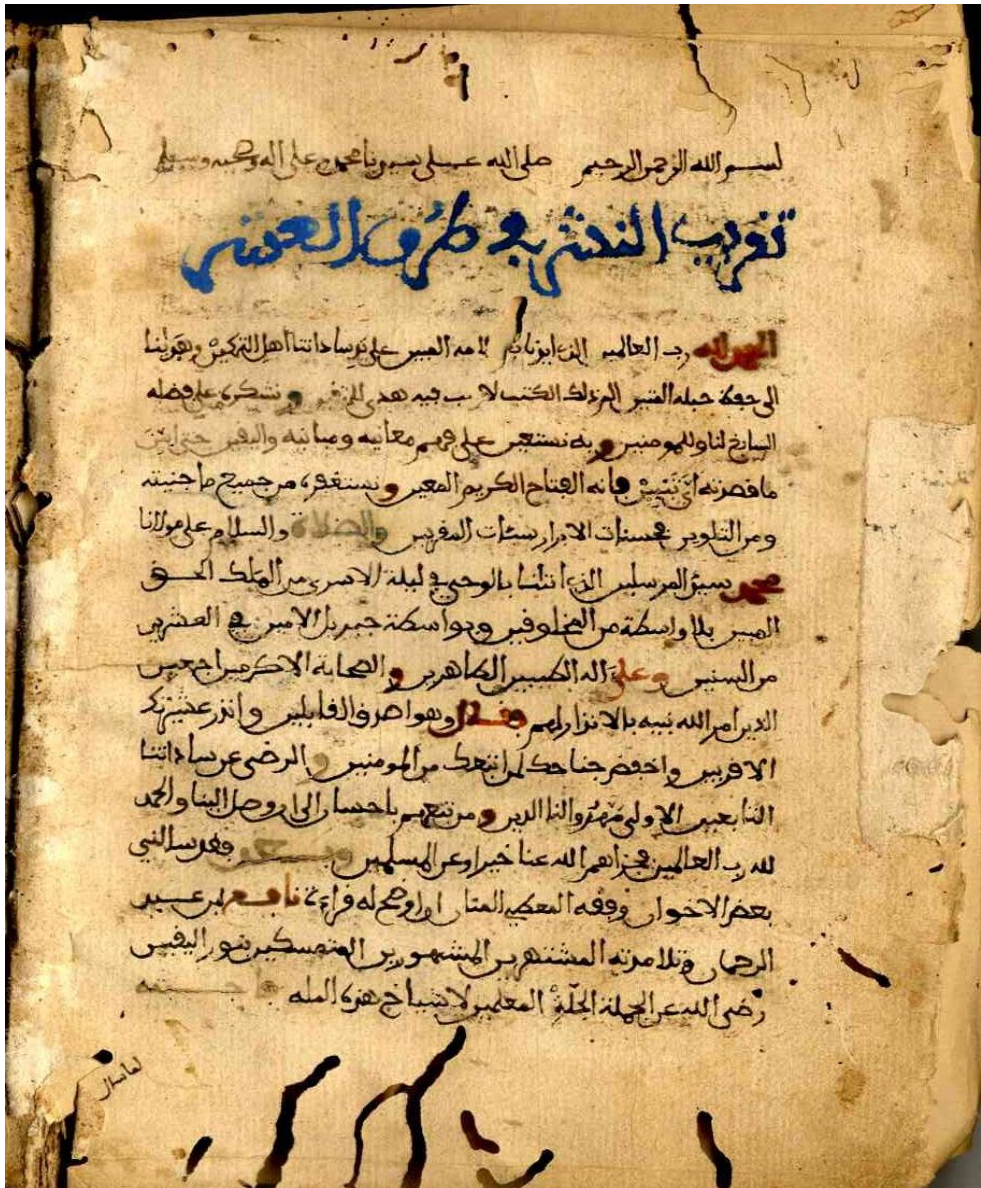 بسم الله الرحمن الرحيم صلى الله على سيدنا محمد وعلى اله وصحبه وسلم
تقريب النشر في طرق العشر
الحمد لله رب العالمين الذي المبين على ساداتنا اهل
الى حفظ حبله المتين الم ذلك الكتب لا ريب فيه هدى للمتقين و نشكره على فضله
السابغ لنا وللمومنين وبه نستعين على فهم معانيه ومبانيه واليقين حتى
ما قصدته فإنه الفتاح الكريم المعين و نستغفره من جميع ما جنيته
ومن التلوين فحسنات الابرار سيئات المقربين والصلاة والسلام على مولانا
محمد سيد المرسلين الذي اتانا بالوحي في ليلة الاسرى من الملك الحق
المبين بلا واسطة من المخلوقين وبواسطة جبريل الامين في العشرين
من السنين وعلى اله الطيبين الطاهرين و الصحابة الاكرمين اجمعين
الذين امر الله نبيه بالانذار لهم فقال وهو اصدق القايلين و انذر عشيرتك
الاقربين واخفض جناحك لمن اتبعك من المومنين و الرضى عن ساداتنا
التابعين الاولى مهدوا لنا الدين و من تبعهم باحسان الى ان وصل الينا والحمد
لله رب العالمين فجزاهم الله عنا خيرا وعن المسلمين وبعد فقد سالني
بعض الاخوان وفقه المعطي المنان ان اوضح له قراءة نافع بن عبد
الرحمان وتلامذته المشتهرين المشهورين المتمسكين بنور اليقين
رضي الله عن الجملة الجلة المعلمين لاشياخ هذه الملة فاجبته
لما سال